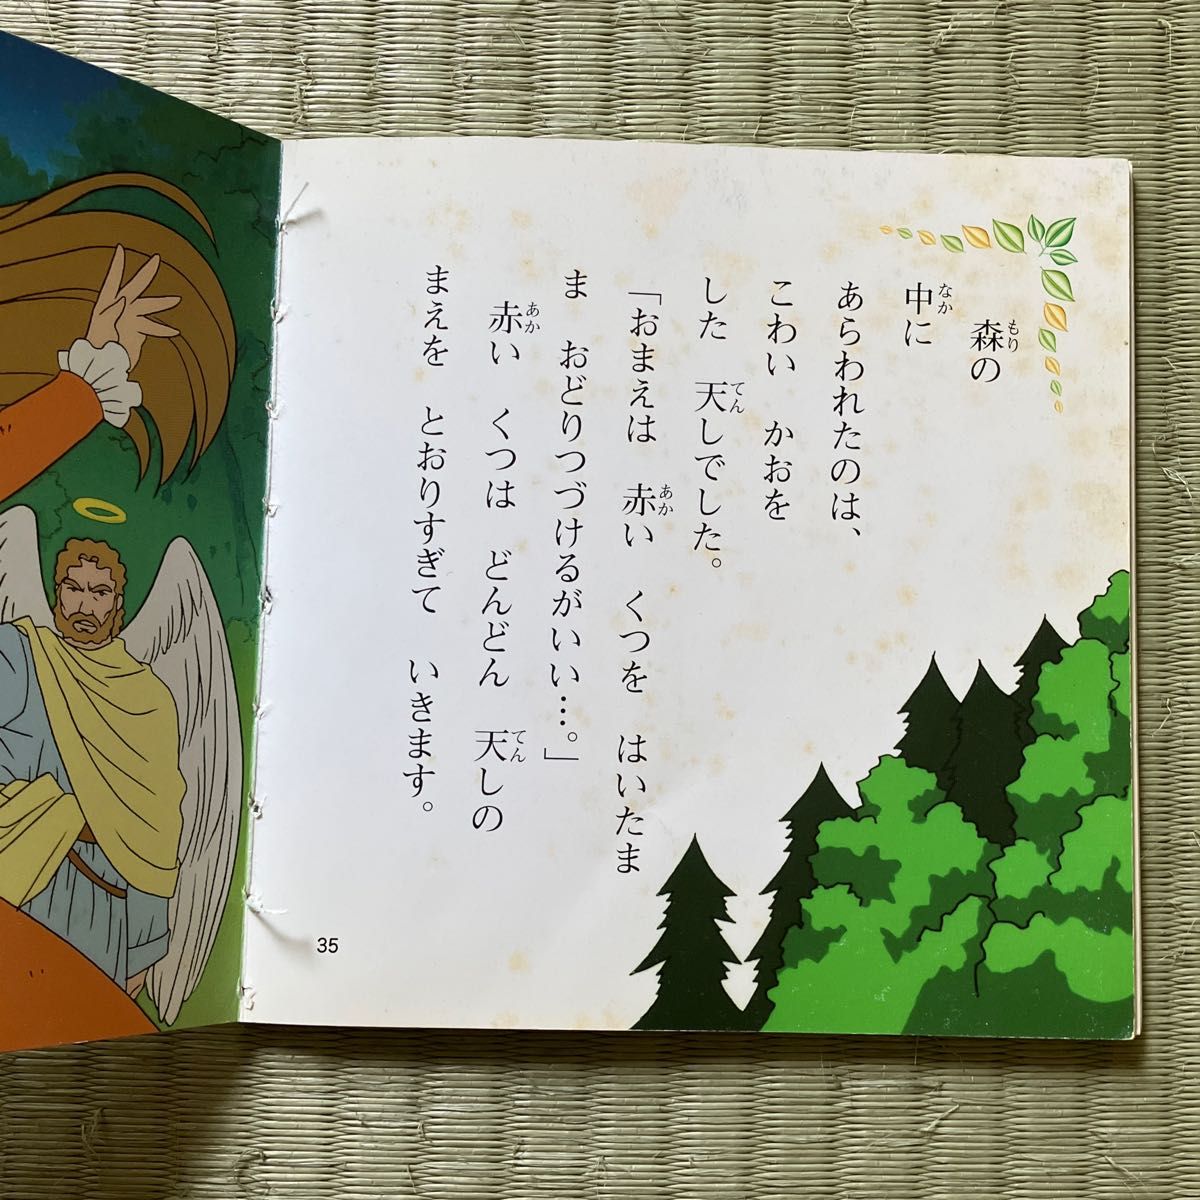 森の
中に
あらわれたのは、
こわい かおを
した 天しでした。
「おまえは 赤い くつを はいたま
ま おどりつづけるがいい…。」
赤い くつは どんどん 天しの
まえを とおりすぎて いきます。
もり
なか
てん
あか
あか
てん
35